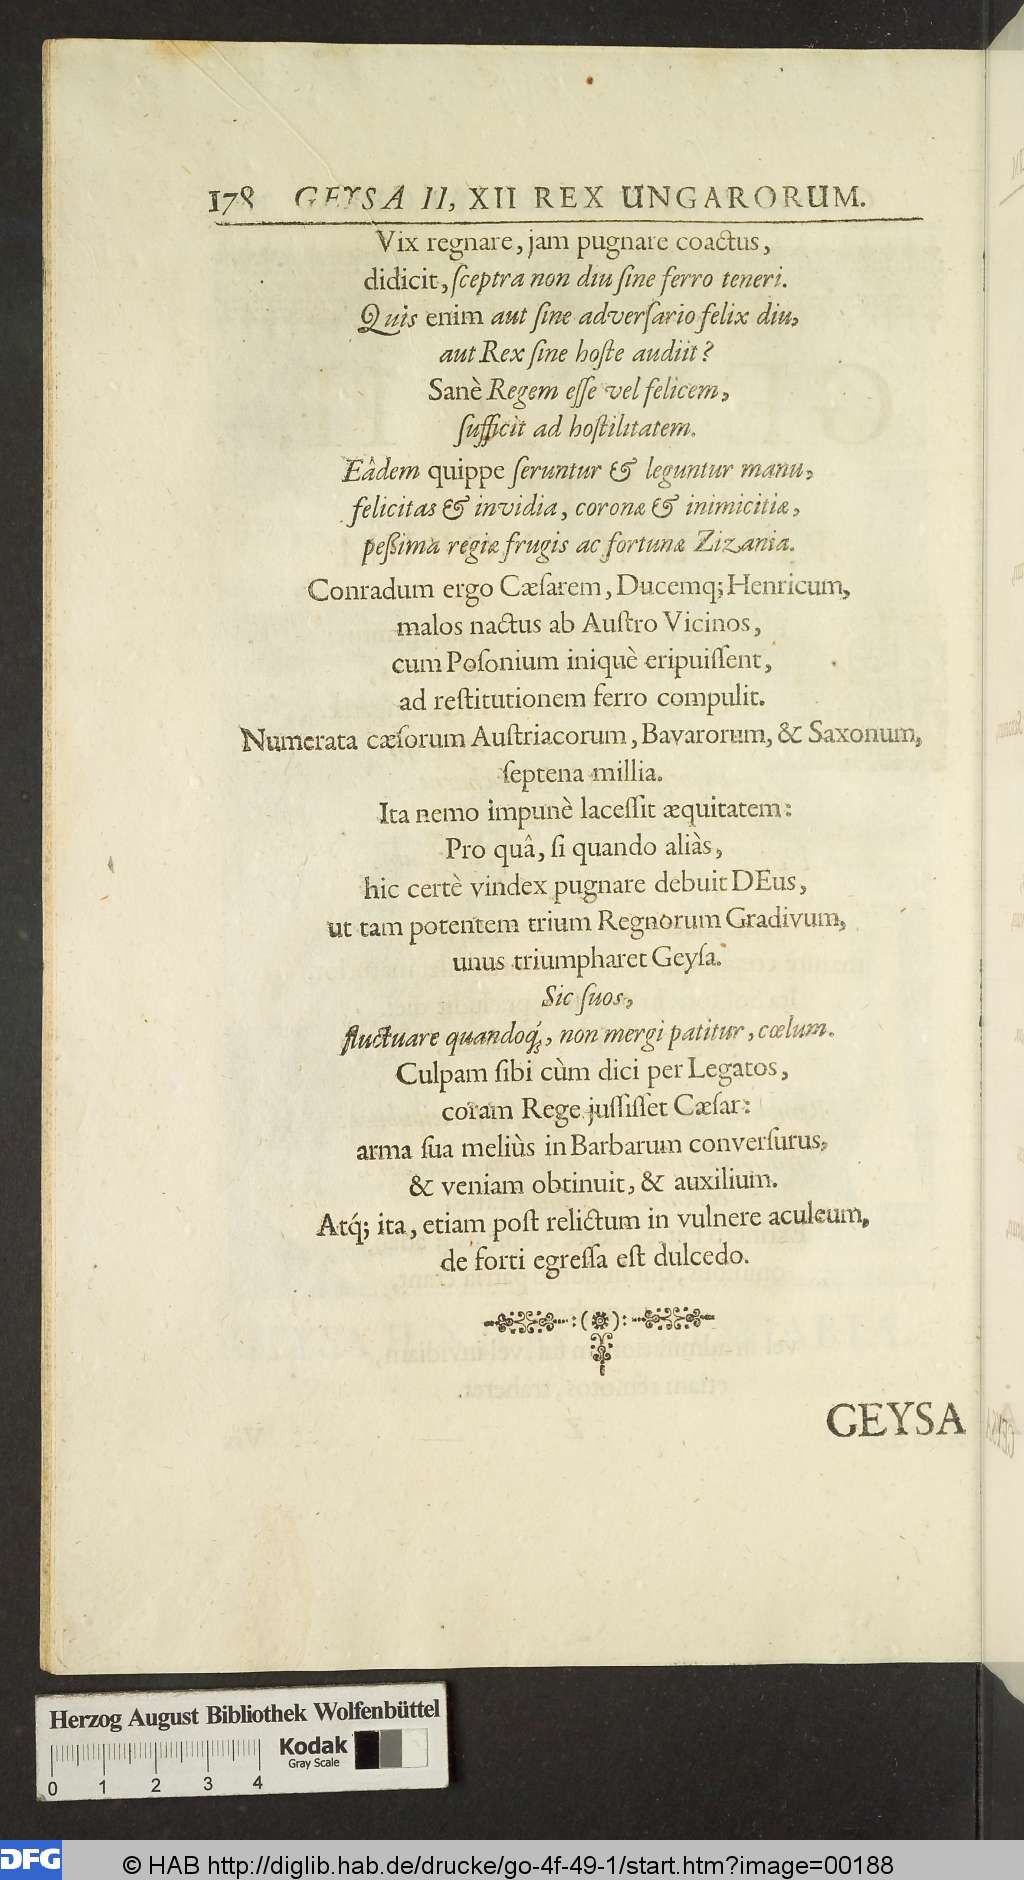 178 GEYSA II, XII REX UNGARORUM.
Vix regnare, jam pugnare coactus,
didicit, ſceptra non diu ſine ferro teneri.
Quis enim aut ſine adverſario felix diu,
aut Rex ſine hoſte audiit?
Sanè Regem eſſe vel felicem,
ſufficit ad hoſtilitatem.
Eâdem quippe ſeruntur & leguntur manu,
felicitas & invidia, coronæ & inimicitiæ,
peßima regiæ frugis ac fortunæ Zizania.
Conradum ergo Cæſarem, Ducemq; Henricum,
malos nactus ab Auſtro Vicinos,
cum Poſonium iniquè eripuiſſent,
ad reſtitutionem ferro compulit.
Numerata cæſorum Auſtriacorum, Bavarorum, & Saxonum,
ſeptena millia.
Ita nemo impunè laceſſit æquitatem:
Pro quâ, ſi quando aliàs,
hic certè vindex pugnare debuit DEus,
ut tam potentem trium Regnorum Gradivum,
unus triumpharet Geyſa.
Sic ſuos,
fluctuare quandoq́;, non mergi patitur, cœlum.
Culpam ſibi cùm dici per Legatos,
coram Rege juſſiſſet Cæſar:
arma ſua meliùs in Barbarum converſurus,
& veniam obtinuit, & auxilium.
Atq́; ita, etiam poſt relictum in vulnere aculeum,
de forti egreſſa eſt dulcedo.
GEYSA
Herzog August Bibliothek Wolfenbüttel
Kodak
Gray Scale
0 1 2 3 4
DFG
© HAB http://diglib.hab.de/drucke/go-4f-49-1/start.htm?image=00188